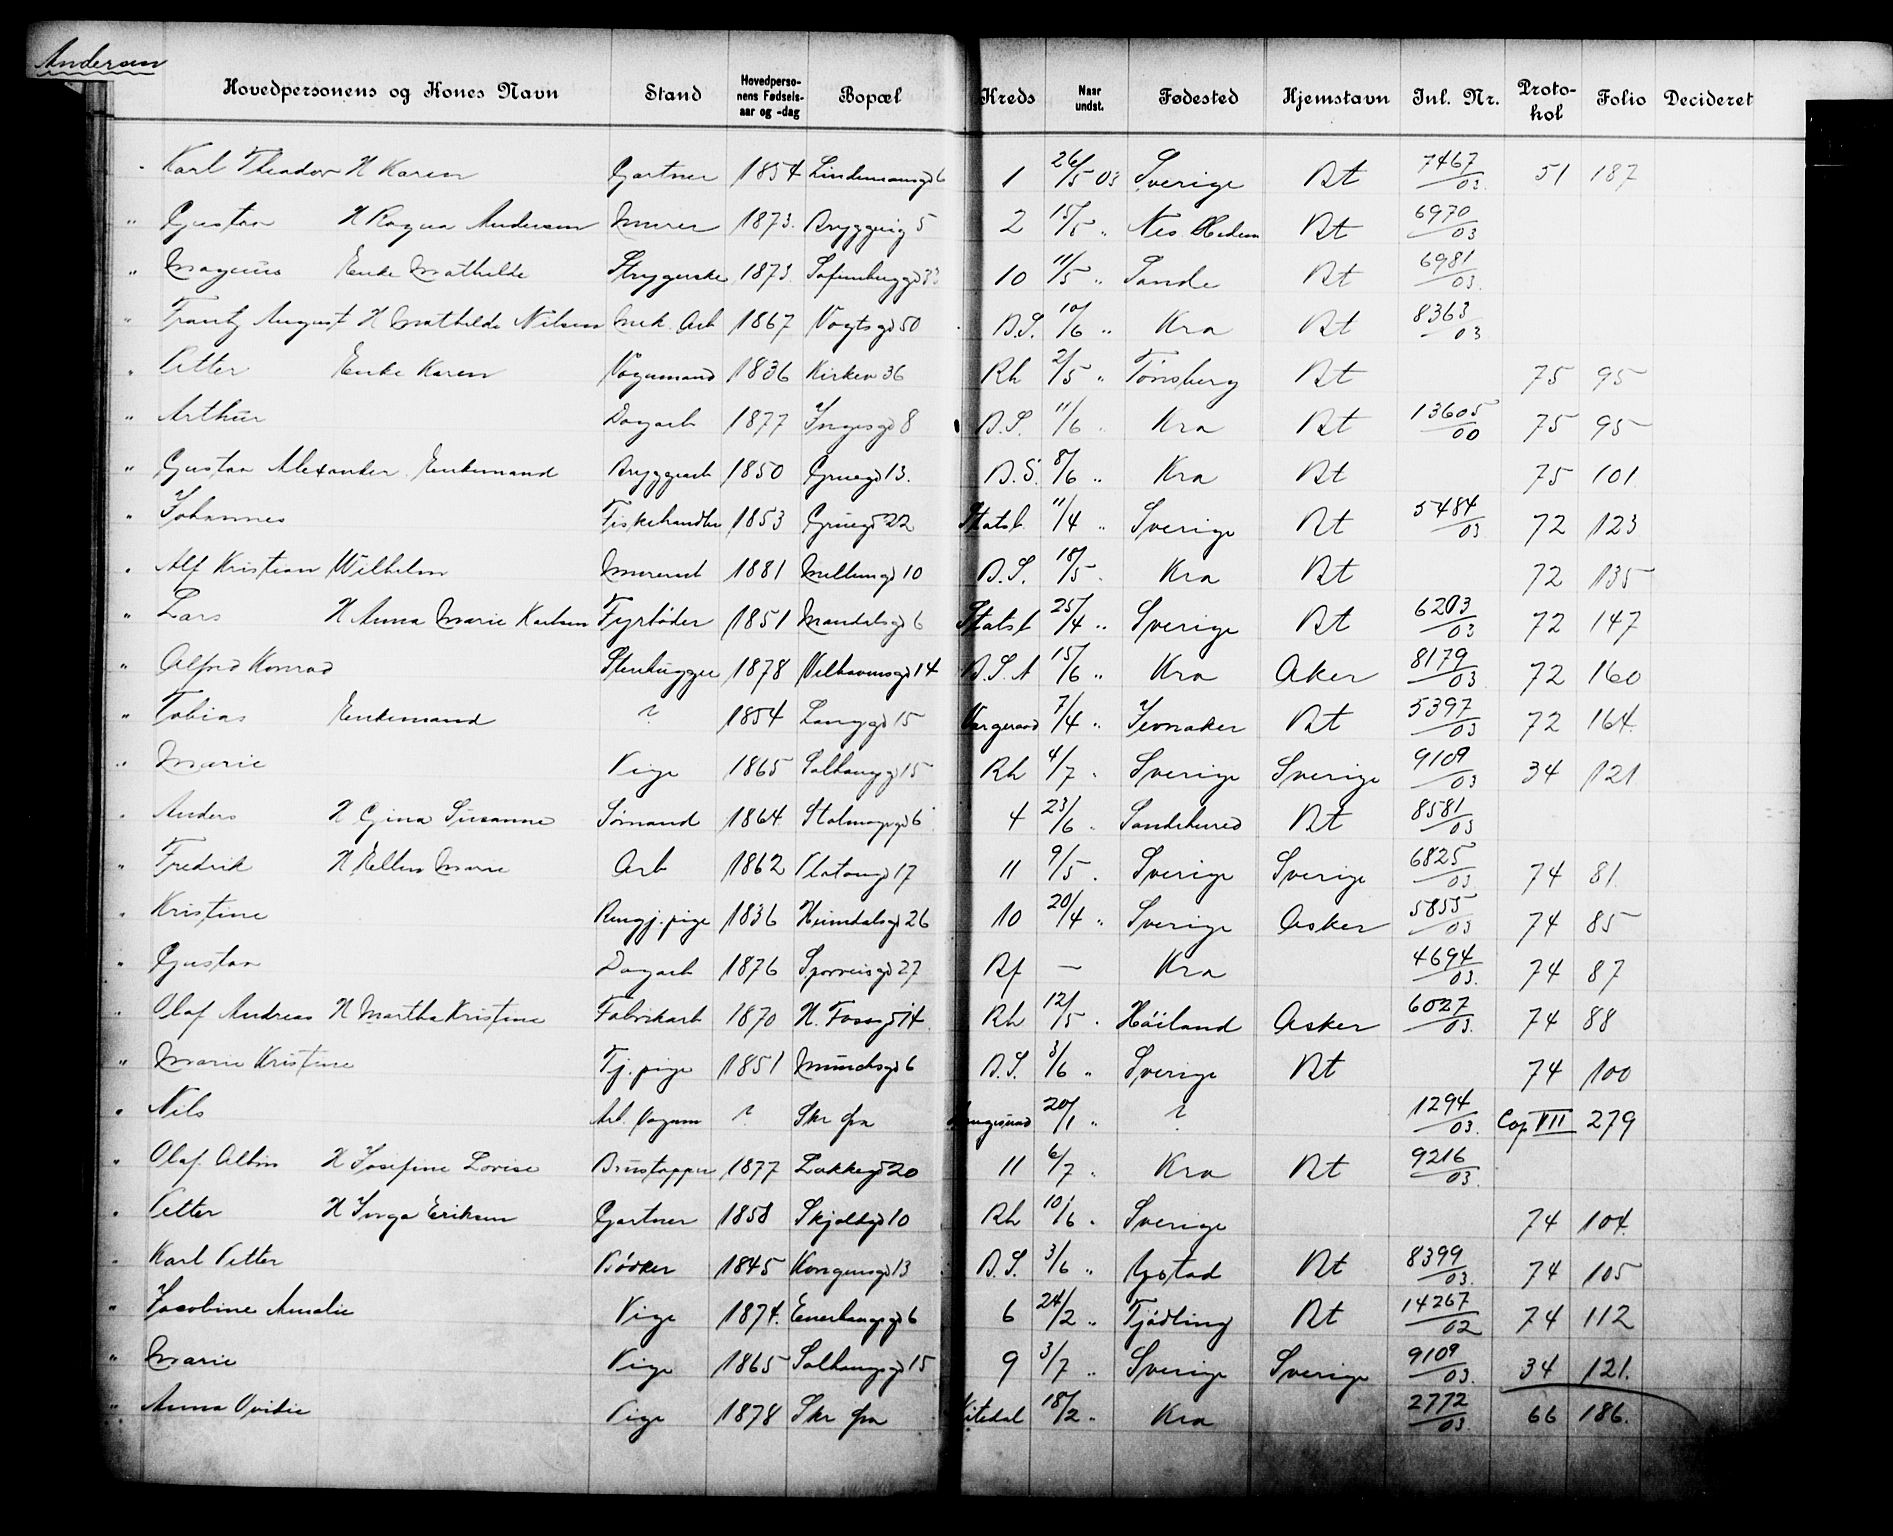 Andersen
Hovedpersonens og Kones Navn Stand Hovedpersonens Fødselsaar og -dag Bopæl Kreds Naar undst. Fødested Hjemstavn Inl. Nr. Protokol Folio Decideret
Karl Theodor H Karen Gartner 1854 Lindemansgd 6 1 26/5 03 Sverige Bt 7467/03. 51 187
" Gustav H Ragna Andersen Murer 1873. Bryggeig 5 2 15/5 " Nes Hedem Bt 6970/03
" Magnus Enke Mathilde Strygerske 1873. Sofienberggd 33 10 11/5 " Sande Bt 6981/03.
" Frantz August H Mathilde Nilsen Mek. Arb 1867 Vogtsgd 50 B.S. 10/6 " Kra Bt 8363/03
" Petter Enke Karen Vognmand 1836 Kirkev 36 Rh 2/5 " Tönsberg Bt 75 95
" Arthur Dagarb 1877 Ingesgd 8 B.S. 11/6 " Kra Bt 13605/00 75 95
" Gustav Alexander. Enkemand Bryggearb 1850 Gruegd 13. B.S. 8/6 " Kra Bt 75 101
" Johannes Fiskehandler 1853 Gruegd 22 Statsb. 11/4 " Sverige Bt 5484/03 72 123
" Alf Kristian Wilhelm Murerarb 1881 Mellumgd 10 B.S. 18/5 Kra Bt 72 135
" Lars H Anna Marie Karlsen Fyrbøder 1851 Mandalsgd 6 Statsb 25/4 " Sverige Bt 6203/03 72 147
" Alfred Konrad Stenhugger 1878 Vilhavensgd 14 B.S.A 15/6 " Kra Aker 8179/03. 72 160
" Tobias Enkemand ? 1854 Langgd 15 7/4 " Jevnaker Bt 5397/03 72 164.
" Marie Pige 1865 Solhauggd 15 Rh 4/7 " Sverige Sverige 9109/03 34 121
" Anders H Gina Susanne Sömand 1864. Stolmagergd 6 4 23/6 " Sandeherred Bt 8581/03
" Fredrik H Ellen Marie Arb 1862 Platousgd 17 11 9/5. Sverige Sverige 6825/03 74 81.
" Kristine Rengj. pige 1836 Heimdalsgd 26 10 20/4 " Sverige Asker 5855/03 74 85
" Gustav Dagarb 1876 Sporveisgd 27 Bf — Kra 4694/03. 74 87
" Olaf Andreas H Martha Kristine Fabrikarb 1870 N. Fossgd 14. Rh 12/5 " Höiland Asker 6027/03. 74 88
" Marie Kristine Tj. pige 1851 Munchsgd 6 B.S. 3/6 " Sverige Bt 74 100
" Nils Arb. Vognm ? Skr fra 20/1 " ? 1294/03. Cop VII 279
" Olaf Albin H Josefine Lovise Brustapper 1877 Lakkegd 20 11 6/7 " Kra Bt 9216/03.
" Petter H Inga Eriksen Gartner 1858 Skjoldsgd 10 Rh 10/6 " Sverige 74 104.
" Karl Petter Bödker 1845 Kongensgd 13 B.S. 3/6 " Ystad Bt 8399/03. 74 105
" Jacobine Amalie Pige 1874. Enerhaugsgd 6 6 24/2 " Fjödling Bt 14267/02 74 112
" Marie Pige 1865 Solhaugsgd 15 9 3/7 " Sverige Sverige 9109/03. 34 121.
" Anna Ovidie Pige 1878 Skr fra Kitedal 18/2 " Kra 2772/03. 66 186.